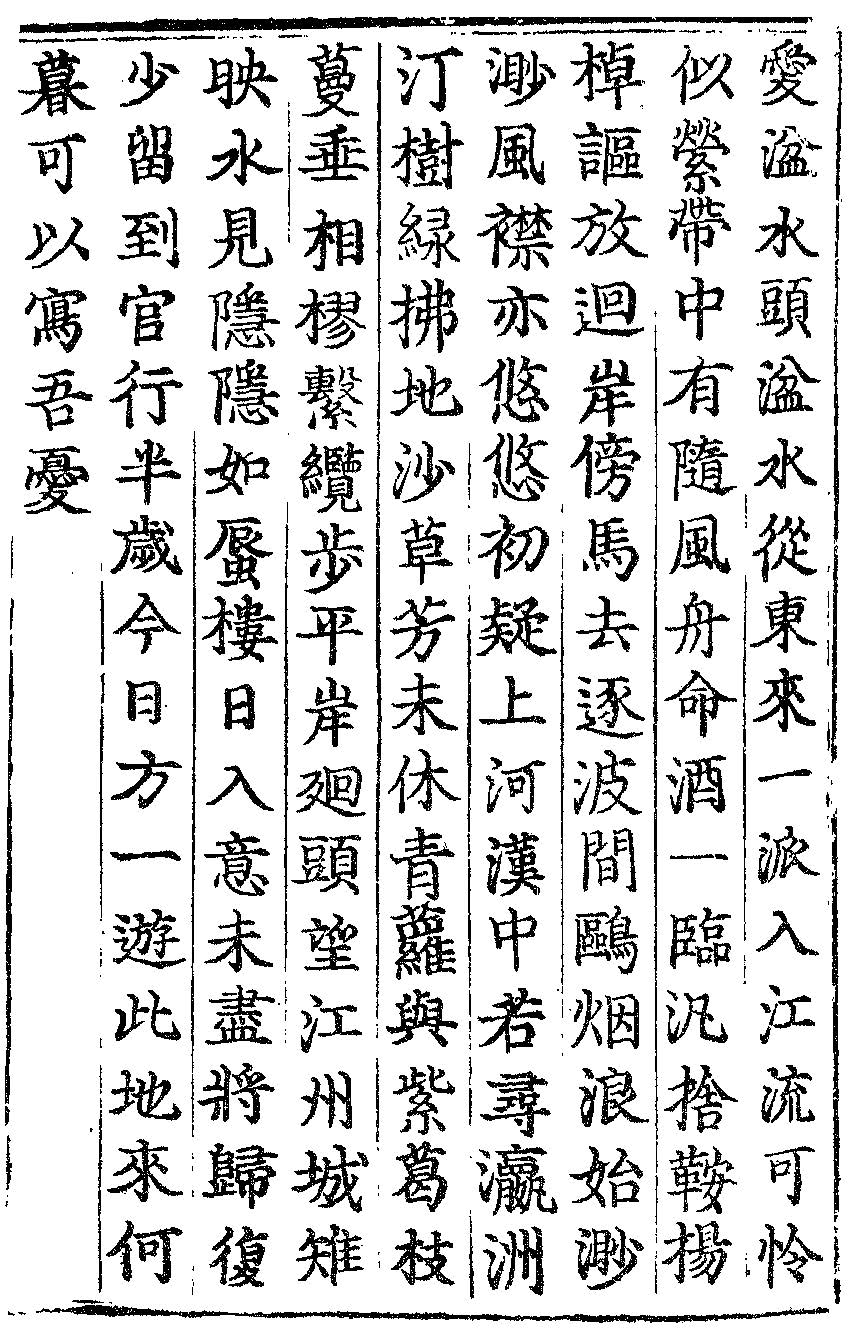 愛湓水頭湓水從東來一派入江流可怜
似縈帶中有隨風舟命酒一臨汎捨鞍揚
棹謳放迴岸傍馬去逐波間鷗烟浪始渺
渺風襟亦悠悠初疑上河漢中若尋瀛洲
汀樹緑拂地沙草芳未休青蘿與紫葛枝
蔓垂相樛繫纜步平岸迴頭望江州城雉
映水見隱隱如蜃樓日入意未盡將歸復
少留到官行半歲今日方一遊此地來何
暮可以寫吾憂